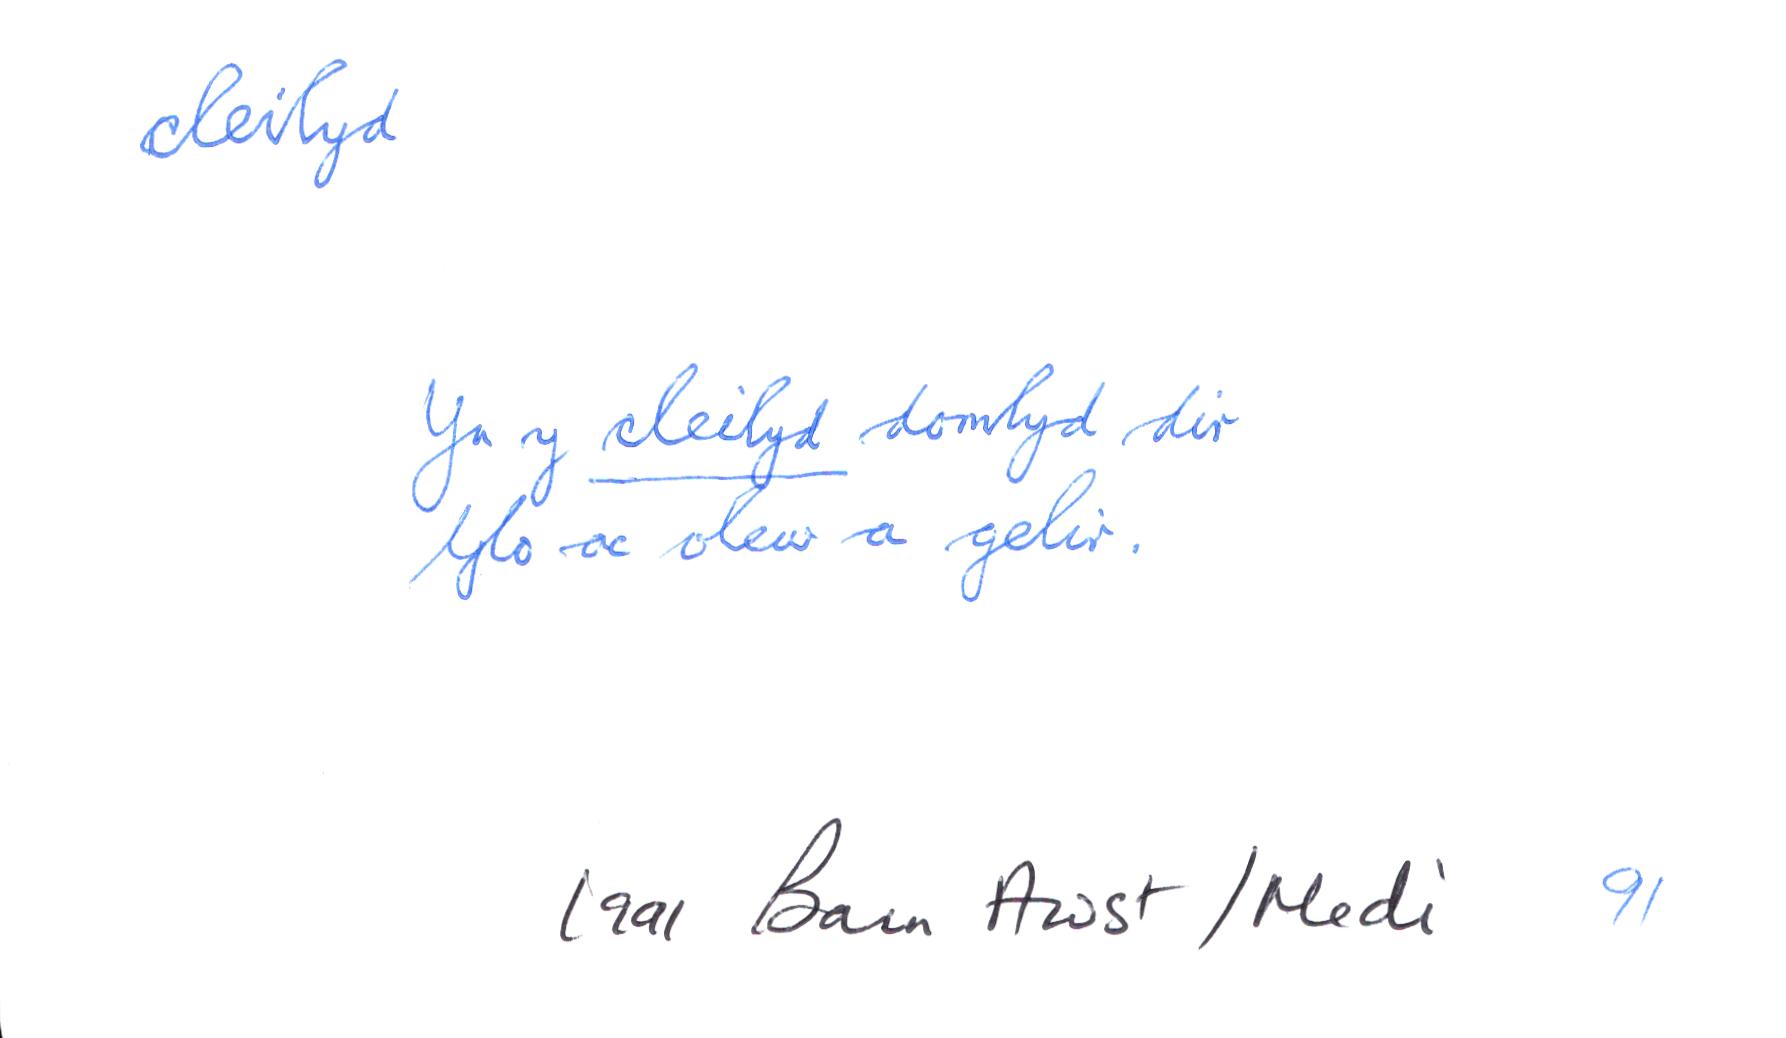 cleilyd
Yn y cleilyd domlyd dir
/glo ac olew a gelir.
1991 Barn Awst/Medi 91